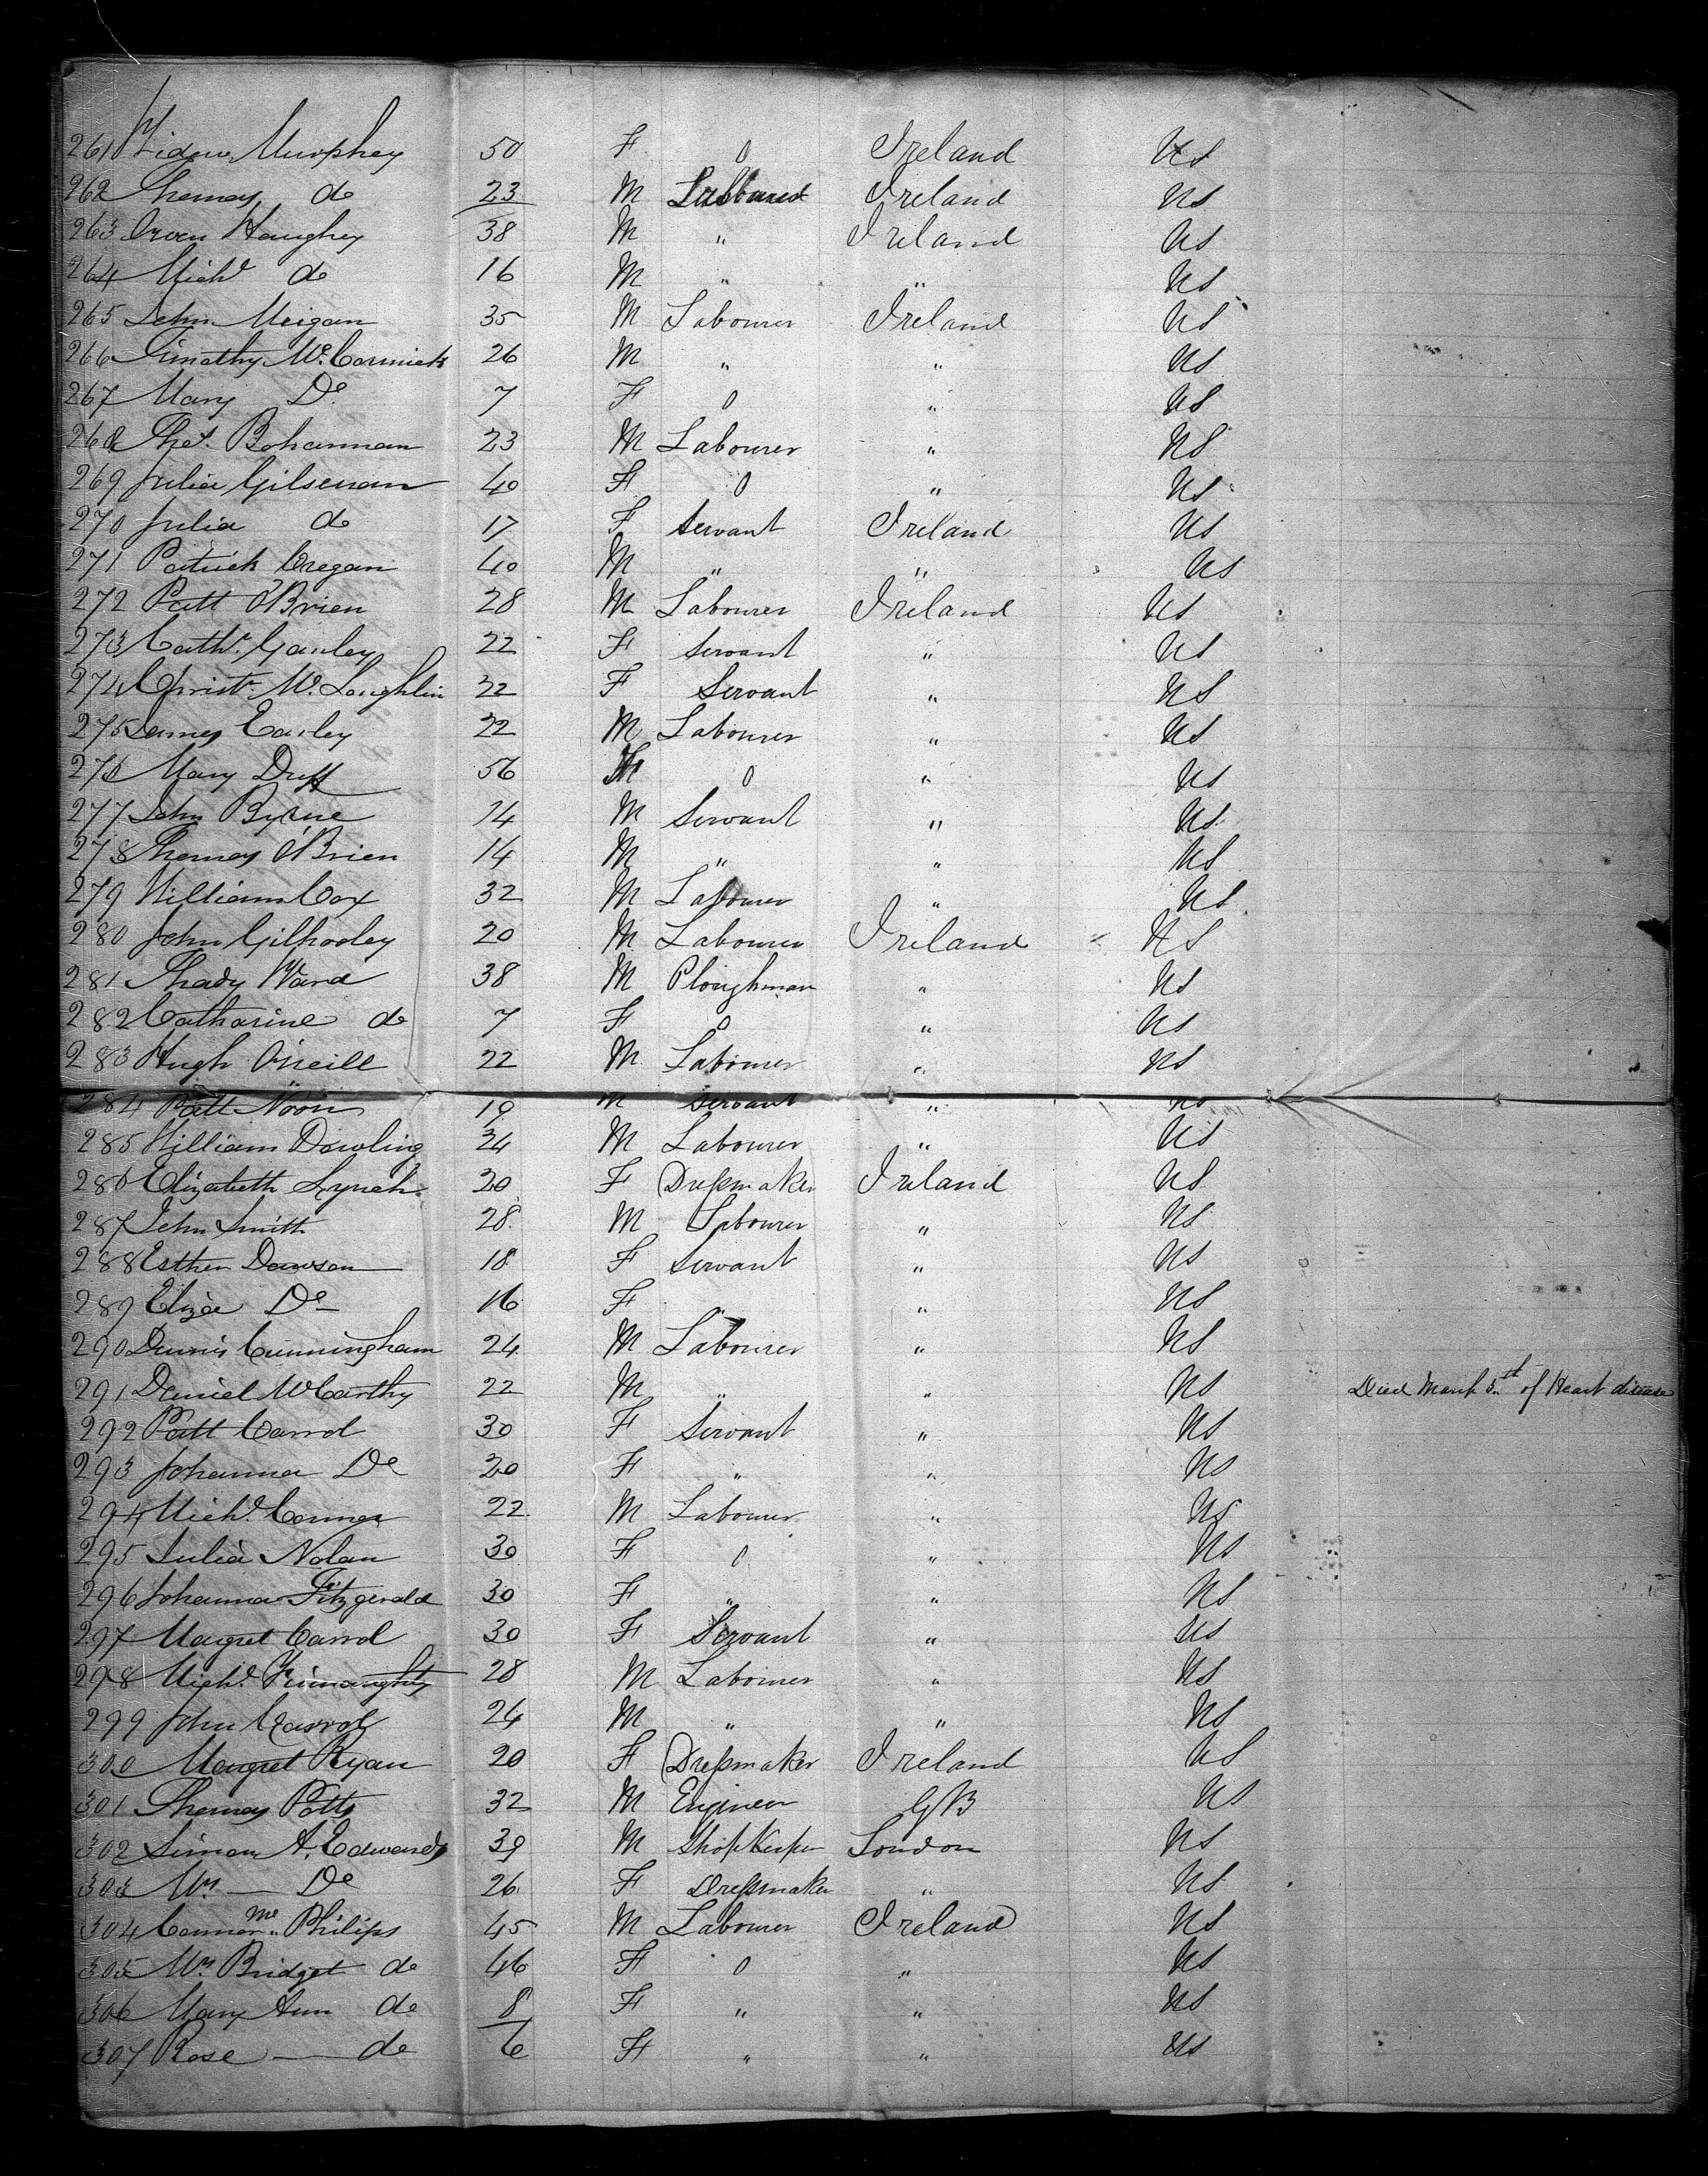 261 Widow Murphey 50 F 0 Ireland US
262 Thomas do 23 M Ireland US
263 Owen Haughey 38 M " Ireland US
264 Michl do 16 M " " US
265 John Meigan 35 M Labourer Ireland US
266 Timothy McCormick 26 M " " US
267 Mary Do 7 F 0 " US
268 Thos. Bohannan 23 M Labourer " US
269 Julia Gilsenan 40 F 0 " US
270 Julia do 17 F Servant Ireland US
271 Patrick Cregan 40 M " " US
272 Patt O'Brien 28 M Labourer Ireland US
273 Cathr. Ganley 22 F Servant " US
274 Christr McLoughlin 22 F Servant " US
275 James Earley 22 M Labourer " US
276 Mary Duff 56 F 0 " US
277 John Byrne 14 M Servant " US
278 Thomas O'Brien 14 M " " US
279 William Cox 32 M Labourer " US
280 John Gilhooley 20 M Labourer Ireland US
281 Thady Ward 38 M Ploughman " US
282 Catharine do 7 F 0 " US
283 Hugh O'neill 22 M Labourer " US
284 Patt Noon 19 M Servant " US
285 William Dowling 34 M Labourer " US
286 Elizabeth Lynch 20 F Dressmaker Ireland US
287 John Smith 28 M Labourer " US
288 Esther Dawson 18 F Servant " US
289 Eliza Do 16 F " " US
290 Dennis Cunningham 24 M Labourer " US
291 Daniel McCarthy 22 M " " US Died March 5th of Heart disease
292 Patt Carrol 30 F Servant " US
293 Johanna Do 20 F " " US
294 Michl. Connor 22 M Labourer " US
295 Julia Nolan 30 F 0 " US
296 Johanna Fitzgerald 30 F " " US
297 Margret Carrol 30 F Servant " US
298 Michl. Finnaughty 28 M Labourer " US
299 John Carrol 24 M " " US
300 Margret Ryan 20 F Dressmaker Ireland US
301 Thomas Potts 32 M Engineer GB US
302 Simon A. Edwards 39 M Shop Keeper London US
303 Mrs — Do 26 F Dressmaker " US
304 Connor Philips 45 M Labourer Ireland US
305 Mrs Bridget do 46 F 0 " US
306 Mary Ann do 8 F " " US
307 Rose — do 6 F " " US